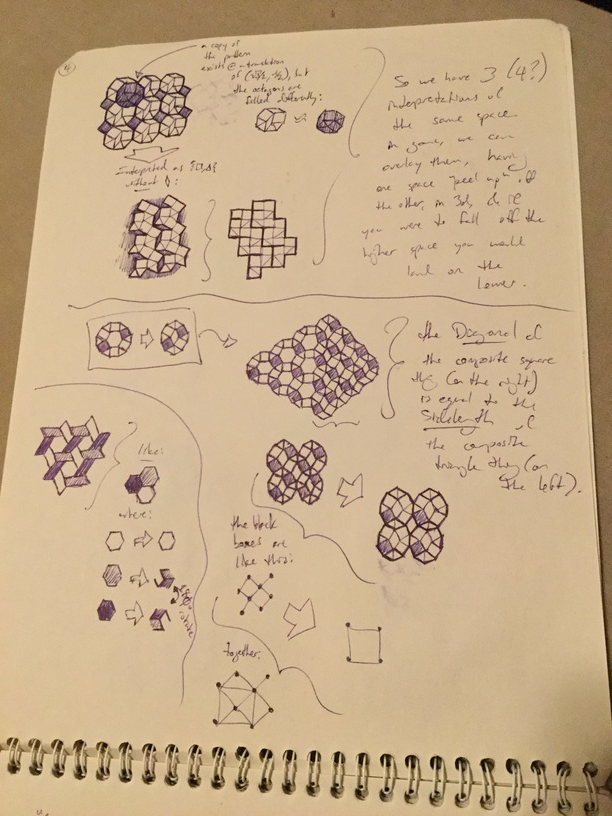 a copy of
the pattern
exists @ a translation
of (√3/2, 1/2), but
the octagons are
filled differently:
Interpreted as
without
So we have 3 (4?)
interpretations of
the same space
in game, we can
overlay them, having
one space "peel up" off
the other, in 3d, & if
you were to fall off the
higher space you would
land on the
lower.
the Diagonal of
the composite square
thg (on the right)
is equal to the
Sidelength of
the composite
triangle thg (on
the left).
like:
where:
rotate
the black
boxes are
like this:
together: